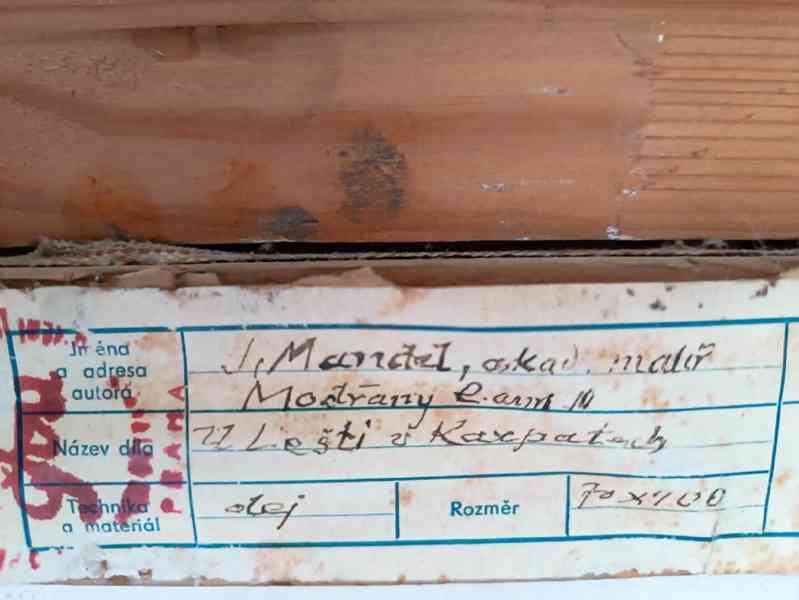 Jména
a adresa
autora
J. Mandel, akad. malíř
Modřany
Název díla
U v Karpatech
Technika
a materiál
olej
Rozměr
70x100
PRAHA